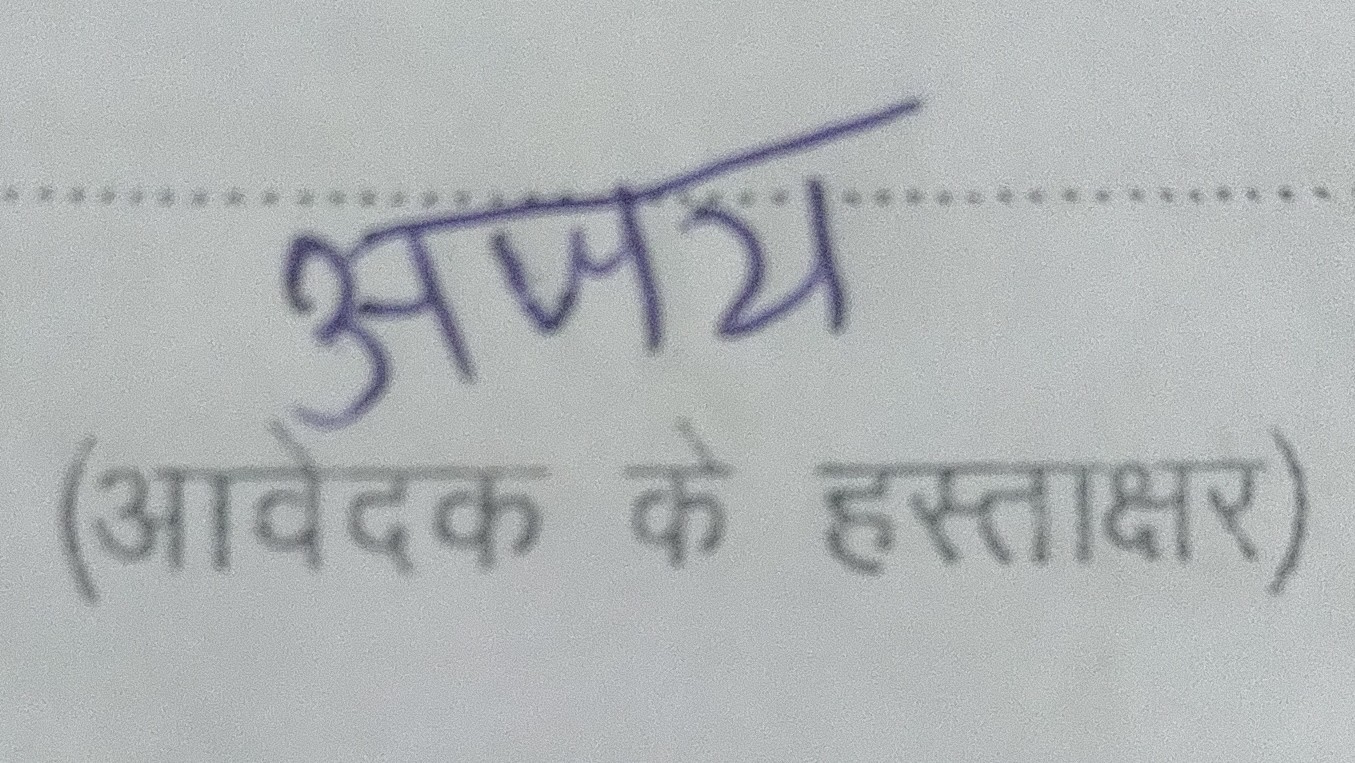 अजय
(आवेदक के हस्ताक्षर)